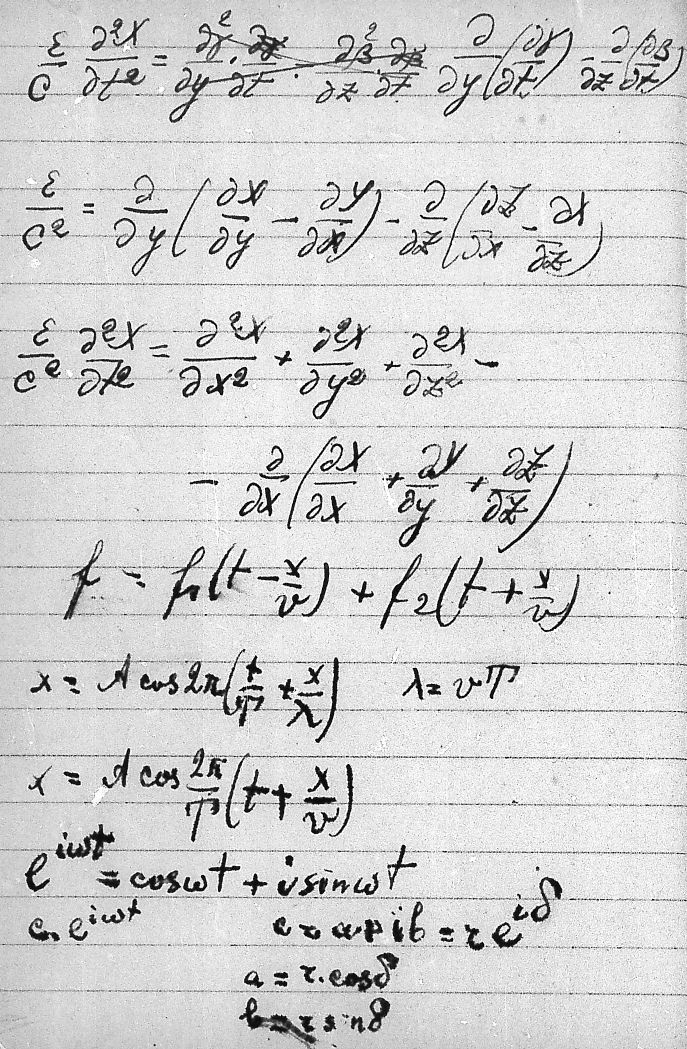 ε/c ∂²X/∂t² = ∂/∂y(∂γ/∂t) - ∂/∂z(∂β/∂t)
ε/c² = ∂/∂y(∂X/∂y - ∂Y/∂x) - ∂/∂z(∂Z/∂x - ∂X/∂z)
ε/c² ∂²X/∂t² = ∂²X/∂x² + ∂²X/∂y² + ∂²X/∂z² -
- ∂/∂x(∂X/∂x + ∂Y/∂y + ∂Z/∂z)
f = f₁(t - x/v) + f₂(t + x/v)
x = A cos 2π(t/T + x/λ) λ = vT
x = A cos 2π/T (t + x/v)
e^{iωt} = cos ωt + i sin ωt
c. e^{iωt} c = a + ib = r e^{iδ}
a = r. cos δ
b = r sin δ